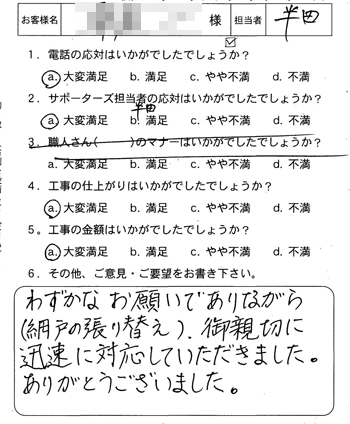 お客様名 様 担当者 半田
1．電話の応対はいかがでしたでしょうか？
a. 大変満足 b. 満足 c. やや不満 d. 不満
2．サポーターズ担当者の応対はいかがでしたでしょうか？
半田
a. 大変満足 b. 満足 c. やや不満 d. 不満
3．職人さん( )のマナーはいかがでしたでしょうか？
a. 大変満足 b. 満足 c. やや不満 d. 不満
4．工事の仕上がりはいかがでしたでしょうか？
a. 大変満足 b. 満足 c. やや不満 d. 不満
5．工事の金額はいかがでしたでしょうか？
a. 大変満足 b. 満足 c. やや不満 d. 不満
6．その他、ご意見・ご要望をお書き下さい。
わずかな お願いでありながら
(網戸の張り替え)、御親切に
迅速に対応していただきました。
ありがとうございました。